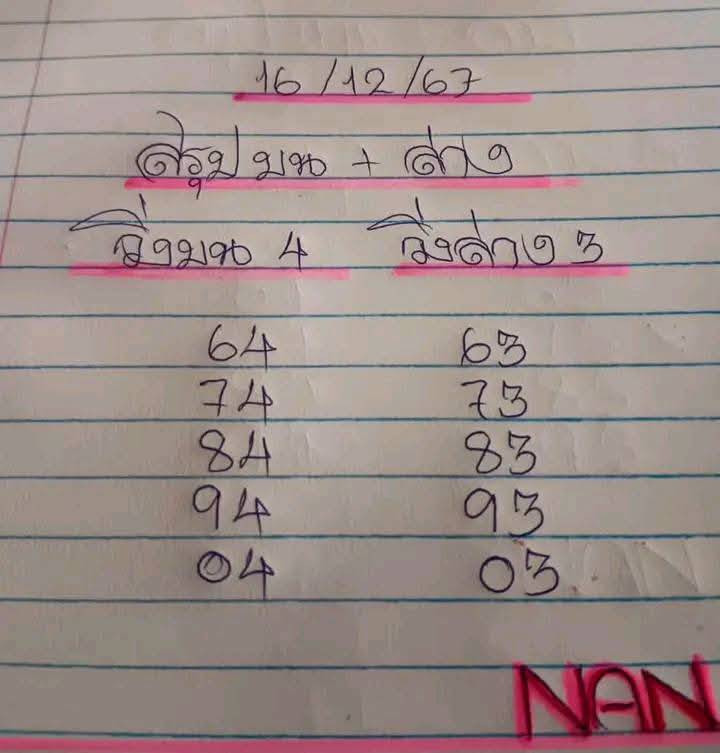 16/12/67
สรุป บน + ล่าง
วิ่งบน 4 วิ่งล่าง 3
64 63
74 73
84 83
94 93
04 03
NAN